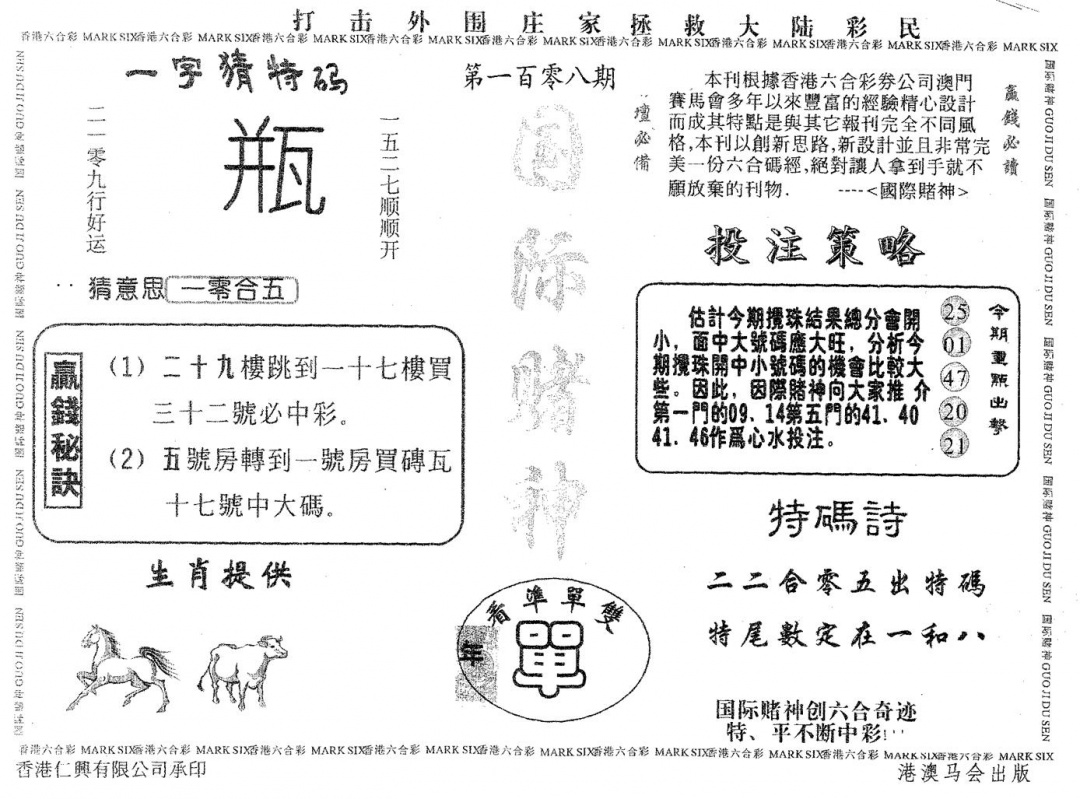 打击外围庄家拯救大陆彩民
香港六合彩 MARK SIX香港六合彩 MARK SIX香港六合彩 MARK SIX香港六合彩 MARK SIX香港六合彩 MARK SIX香港六合彩 MARK SIX香港六合彩 MARK SIX香港六合彩 MARK SIX香港六合彩 MARK SIX
一字猜特码
二一零九行好运
瓶
一五二七顺顺开
猜意思 一零合五
贏錢秘訣
(1) 二十九樓跳到一十七樓買
三十二號必中彩。
(2) 五號房轉到一號房買磚瓦
十七號中大碼。
生肖提供
第一百零八期
国际赌神
看準單雙
年
單
壇必備
本刊根據香港六合彩券公司澳門
賽馬會多年以來豐富的經驗精心設計
而成其特點是與其它報刊完全不同風
格,本刊以創新思路,新設計並且非常完
美一份六合碼經,絕對讓人拿到手就不
願放棄的刊物. ----<國際賭神>
贏錢必讀
投注策略
估計今期攪珠結果總分會開
小，面中大號碼應大旺，分析今
期攪珠開中小號碼的機會比較大
些。因此，因際賭神向大家推 介
第一門的09、14第五門的41、40
41、46作爲心水投注。
25
01
47
20
21
今期重點出擊
特碼詩
二二合零五出特碼
特尾數定在一和八
国际赌神创六合奇迹
特、平不断中彩!
国际赌神 GUO JI DU SEN 国际赌神 GUO JI DU SEN 国际赌神 GUO JI DU SEN 国际赌神 GUO JI DU SEN 国际赌神 GUO JI DU SEN
香港六合彩 MARK SIX香港六合彩 MARK SIX香港六合彩 MARK SIX香港六合彩 MARK SIX香港六合彩 MARK SIX香港六合彩 MARK SIX香港六合彩 MARK SIX香港六合彩 MARK SIX香港六合彩 MARK SIX
香港仁興有限公司承印
港澳马会出版